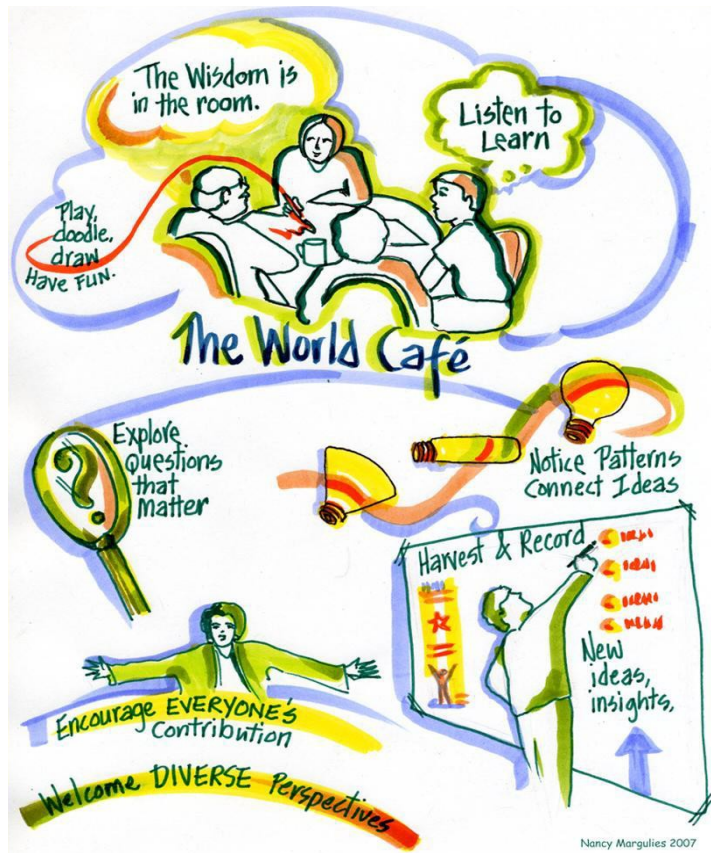 The Wisdom is
in the room.
Listen to
Learn
Play,
doodle,
draw
Have FUN.
The World Café
Explore
Questions
that
matter
Notice Patterns
Connect Ideas
Harvest & Record
New
ideas,
insights,
Encourage EVERYONE'S
Contribution
Welcome DIVERSE Perspectives
Nancy Margulies 2007